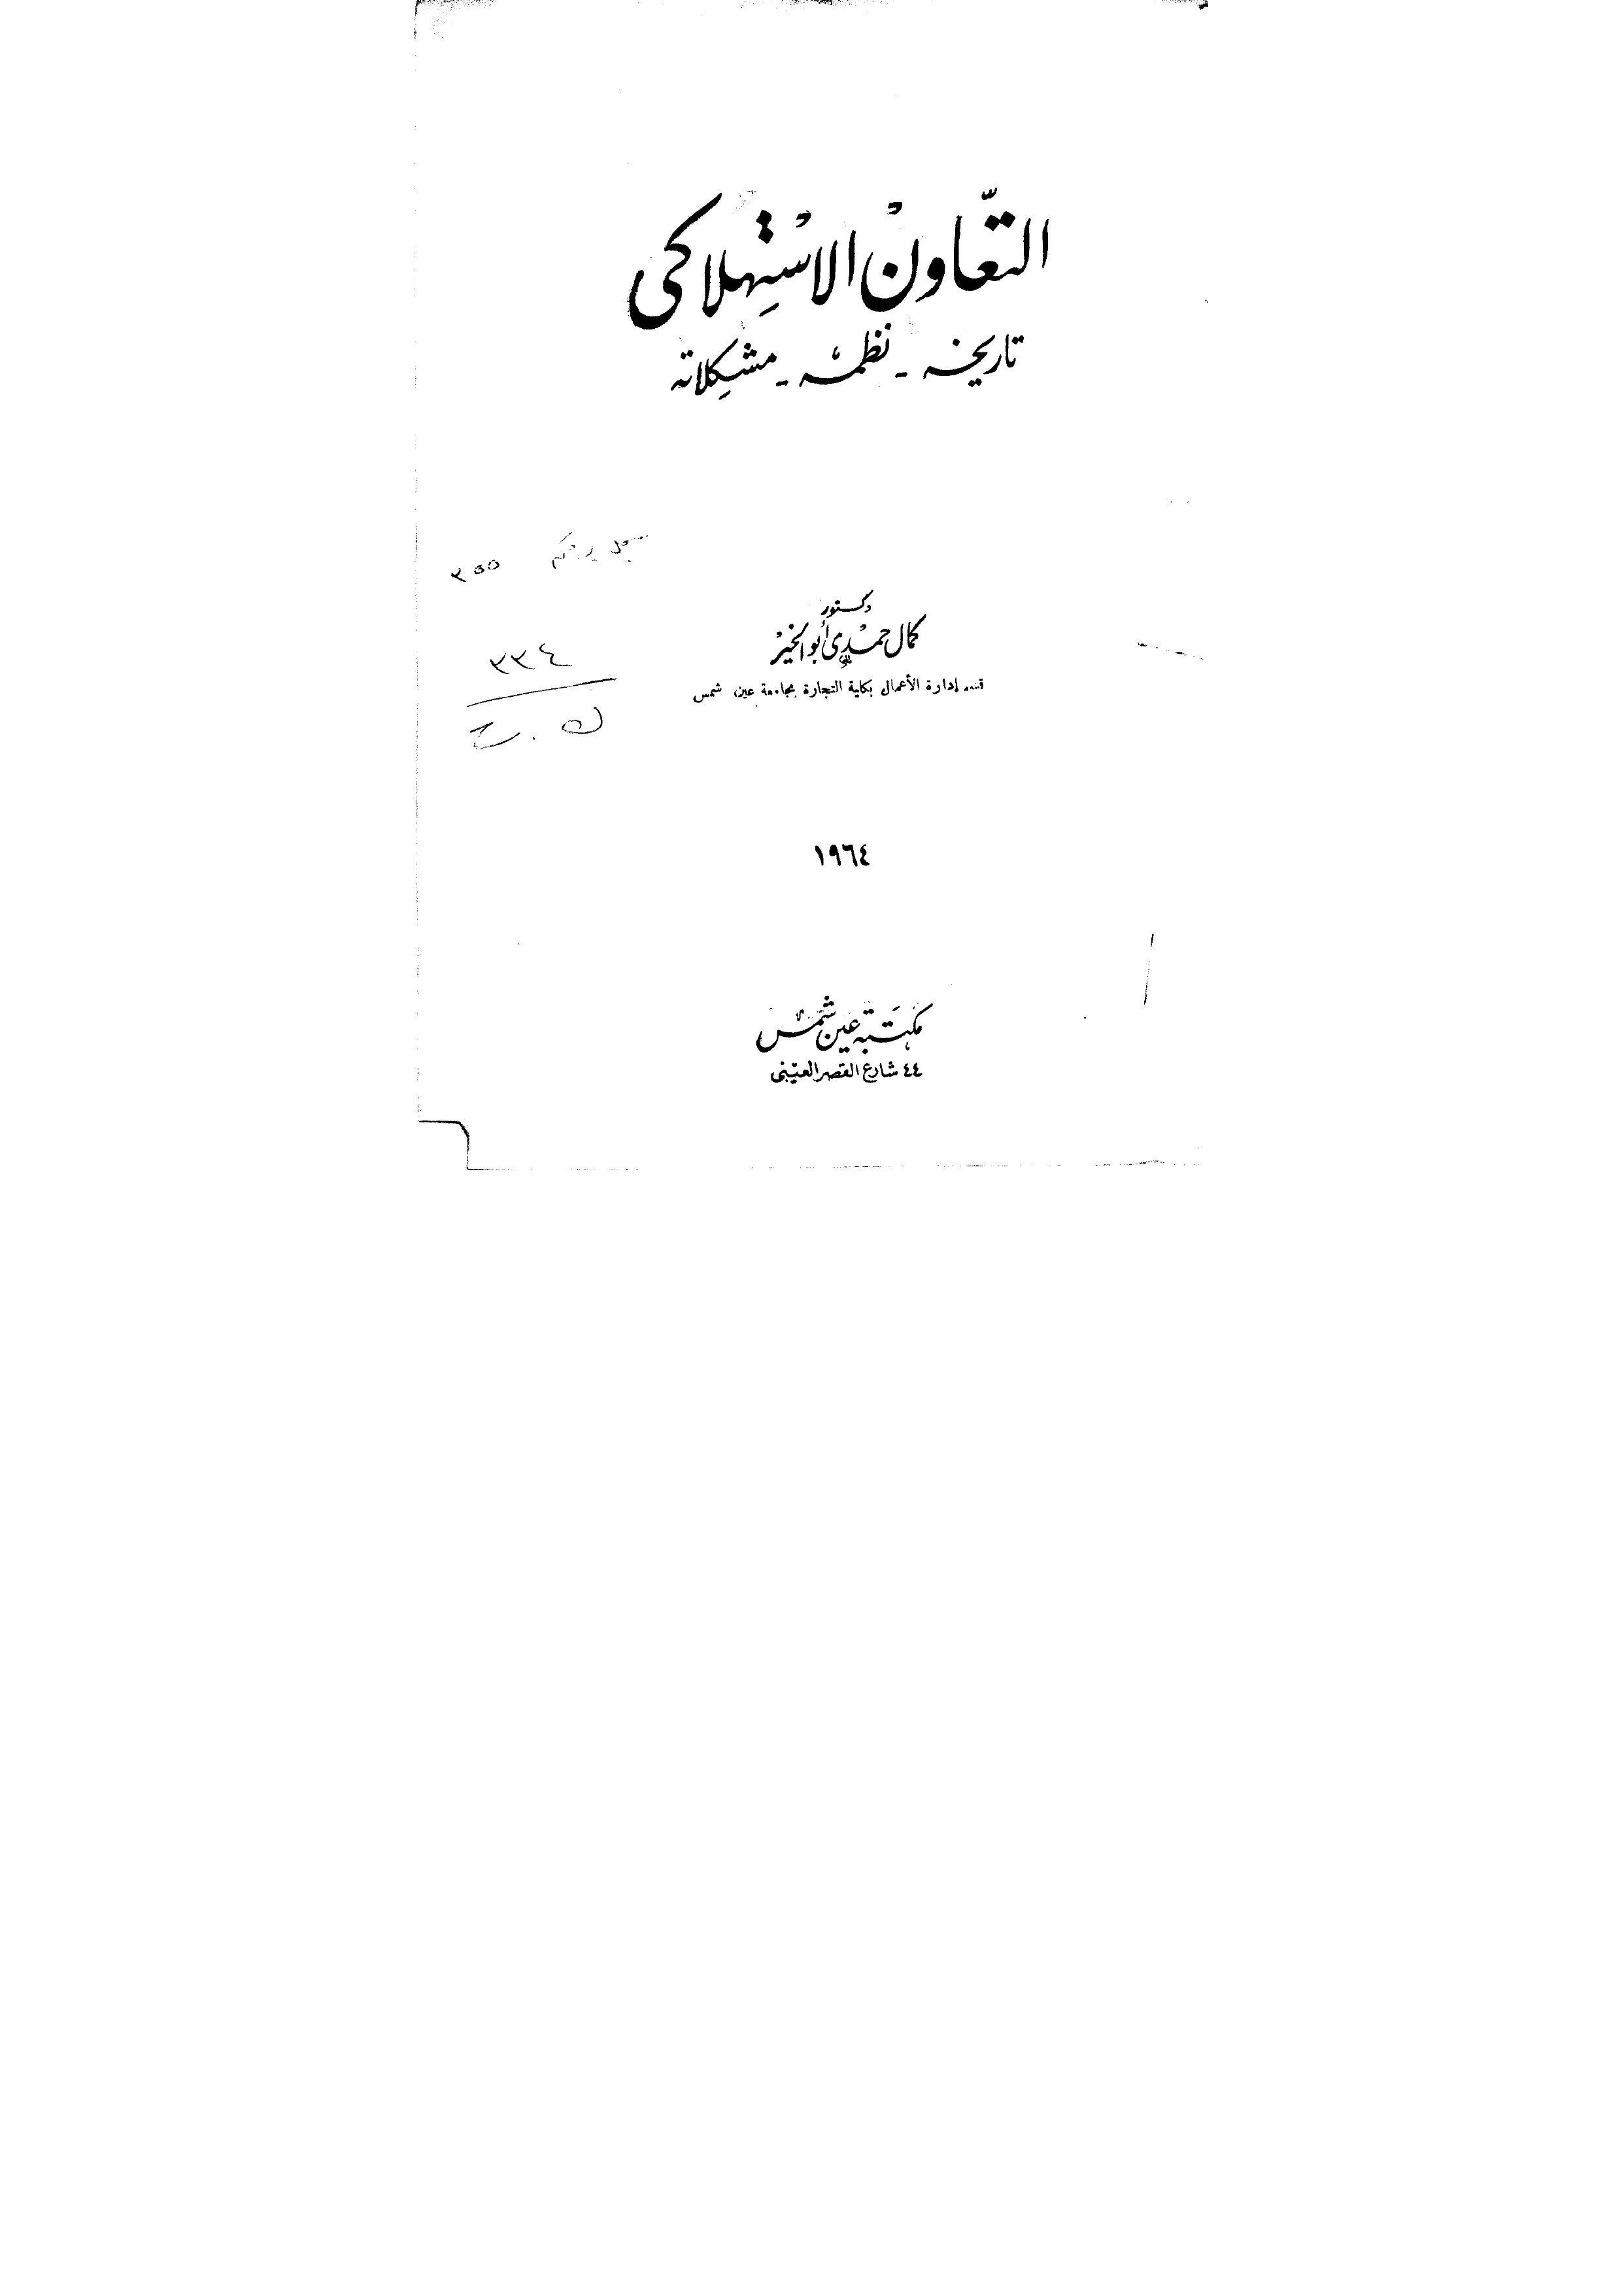 التعاون الاستهلاكى
تاريخه - نظمه - مشكلاته
سجل برقم ٣٥٥
دكتور
كمال حمدى أبو الخير
قسم إدارة الأعمال بكلية التجارة بجامعة عين شمس
٣٣٤
١٩٦٤
مكتبة عين شمس
٤٤ شارع القصر العينى